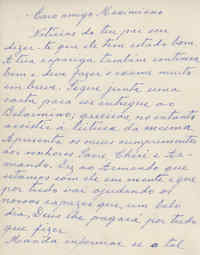 Caro amigo Maximiano
Notícias do teu pai sou
dizer-te que ele tem estado bom
A tua rapariga também continua
bem e deve fazer o exame muito
em breve. Segue junta uma
carta para ser entregue ao
Belarmino, querendo, no entanto
assistir à leitura da mesma
Apresenta os meus cumprimentos
aos senhores José, Chéri e Ar-
mando. Diz ao Armando que
estamos com ele em mente e que
por tudo vai ajudando os
nossos rapazes que, um belo
dia, Deus lhe pagará por tudo
que fizer.
Manda informar se a tal